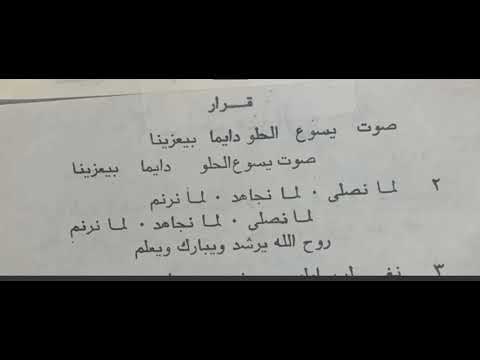 قـــرار
صوت يسوع الحلو دايما بيعزينا
صوت يسوع الحلو دايما بيعزينا
٢ لما نصلى . لما نجاهد . لما نرنم
لما نصلى . لما نجاهد . لما نرنم
روح الله يرشد ويبارك ويعلم
٣